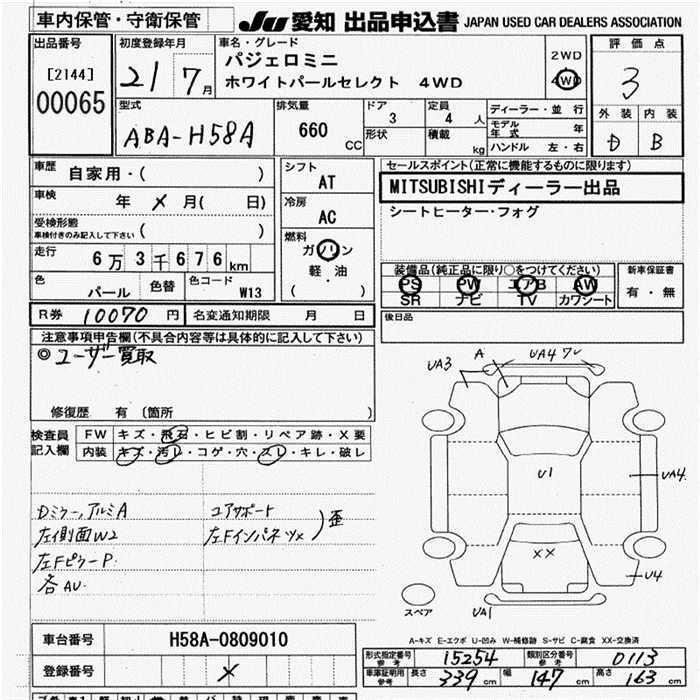 車内保管・守衛保管
JU 愛知 出品申込書 JAPAN USED CAR DEALERS ASSOCIATION
出品番号
[2144]
00065
初度登録年月
21 7月
車名・グレード
パジェロミニ
ホワイトパールセレクト 4WD
2WD
4WD
評価点
3
外装 内装
D B
型式
ABA-H58A
排気量
660 CC
ドア 3
定員 4 人
形状
積載 kg
ディーラー・並行
モデル年式 年
ハンドル 左・右
車歴 自家用・( )
車検 年 メ 月( 日)
受検形態
車検付きのみ記入して下さい ( )
走行 6万3千676km
色 パール 色替 色コード W13
シフト
AT
冷房
AC
燃料
ガソリン
軽・油
( )
セールスポイント(正常に機能するものに限ります)
MITSUBISHIディーラー出品
シートヒーター・フォグ
装備品(純正品に限り○をつけてください)
PS PW エアB AW
SR ナビ TV カワシート
新車保証書
有・無
R券 10070円 名変通知期限 月 日
後日品
注意事項申告欄(不具合内容等は具体的に記入して下さい)
◎ユーザー買取
修復歴 有 (箇所 )
検査員記入欄
FW キズ・飛石・ヒビ割・リペア跡・X要
内装 キズ・汚レ・コゲ・穴・スレ・キレ・破レ
Dミラー,アルミA
左イ則面W2
左Fピラー P.
各AU.
コアサポート
左Fインパネツメ
歪
UA3
A
UA4
U1
UA4
XX
U4
UA1
スペア
A-キズ E-エクボ U-凹み W-補修跡 S-サビ C-腐食 XX-交換済
車台番号 H58A-0809010
登録番号 メ
形式指定番号 参考 15254 類別区分番号 参考 0113
車庫証明用 参考 長さ 339 cm 幅 147 cm 高さ 163 cm